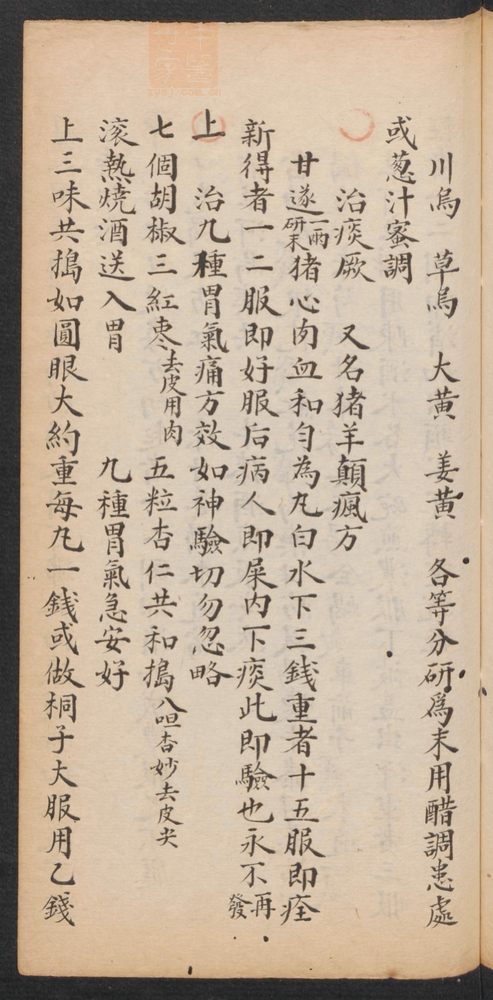 川烏　草烏　大黃　姜黃　各等分研爲末用醋調患處
或葱汁蜜調
治痰厥　又名猪羊顛瘋方
甘遂一兩研末猪心肉血和勻為丸白水下三錢重者十五服即痊
新得者一二服即好服后病人即屎內下痰此即驗也永不再發
上　治九種胃氣痛方效如神驗切勿忽略
七個胡椒三紅枣去皮用肉五粒杏仁共和搗八咀杏妙去皮尖
滚熱燒酒送入胃　九種胃氣急安好
上三味共搗如圓眼大約重每丸一錢或做桐子大服用乙錢